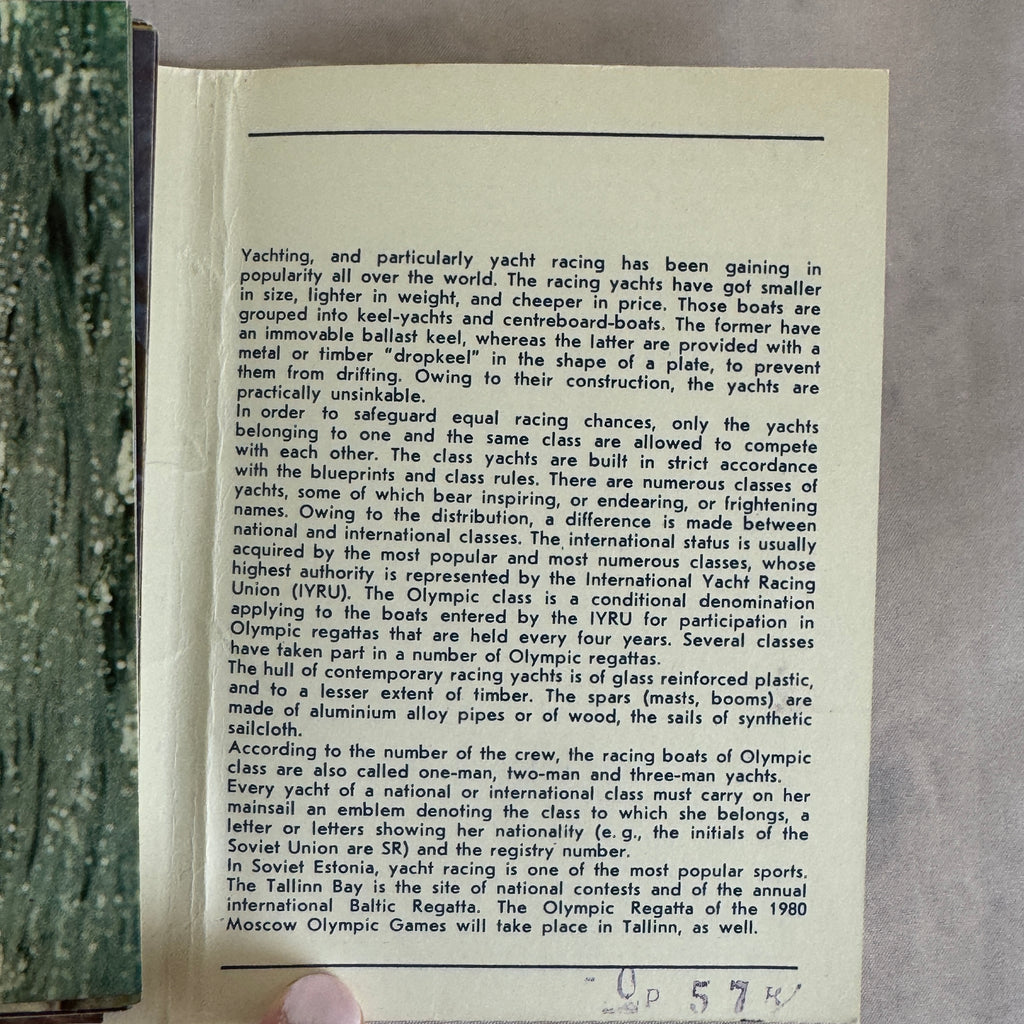 Yachting, and particularly yacht racing has been gaining in
popularity all over the world. The racing yachts have got smaller
in size, lighter in weight, and cheeper in price. Those boats are
grouped into keel-yachts and centreboard-boats. The former have
an immovable ballast keel, whereas the latter are provided with a
metal or timber “dropkeel” in the shape of a plate, to prevent
them from drifting. Owing to their construction, the yachts are
practically unsinkable.
In order to safeguard equal racing chances, only the yachts
belonging to one and the same class are allowed to compete
with each other. The class yachts are built in strict accordance
with the blueprints and class rules. There are numerous classes of
yachts, some of which bear inspiring, or endearing, or frightening
names. Owing to the distribution, a difference is made between
national and international classes. The international status is usually
acquired by the most popular and most numerous classes, whose
highest authority is represented by the International Yacht Racing
Union (IYRU). The Olympic class is a conditional denomination
applying to the boats entered by the IYRU for participation in
Olympic regattas that are held every four years. Several classes
have taken part in a number of Olympic regattas.
The hull of contemporary racing yachts is of glass reinforced plastic,
and to a lesser extent of timber. The spars (masts, booms) are
made of aluminium alloy pipes or of wood, the sails of synthetic
sailcloth.
According to the number of the crew, the racing boats of Olympic
class are also called one-man, two-man and three-man yachts.
Every yacht of a national or international class must carry on her
mainsail an emblem denoting the class to which she belongs, a
letter or letters showing her nationality (e. g., the initials of the
Soviet Union are SR) and the registry number.
In Soviet Estonia, yacht racing is one of the most popular sports.
The Tallinn Bay is the site of national contests and of the annual
international Baltic Regatta. The Olympic Regatta of the 1980
Moscow Olympic Games will take place in Tallinn, as well.
57